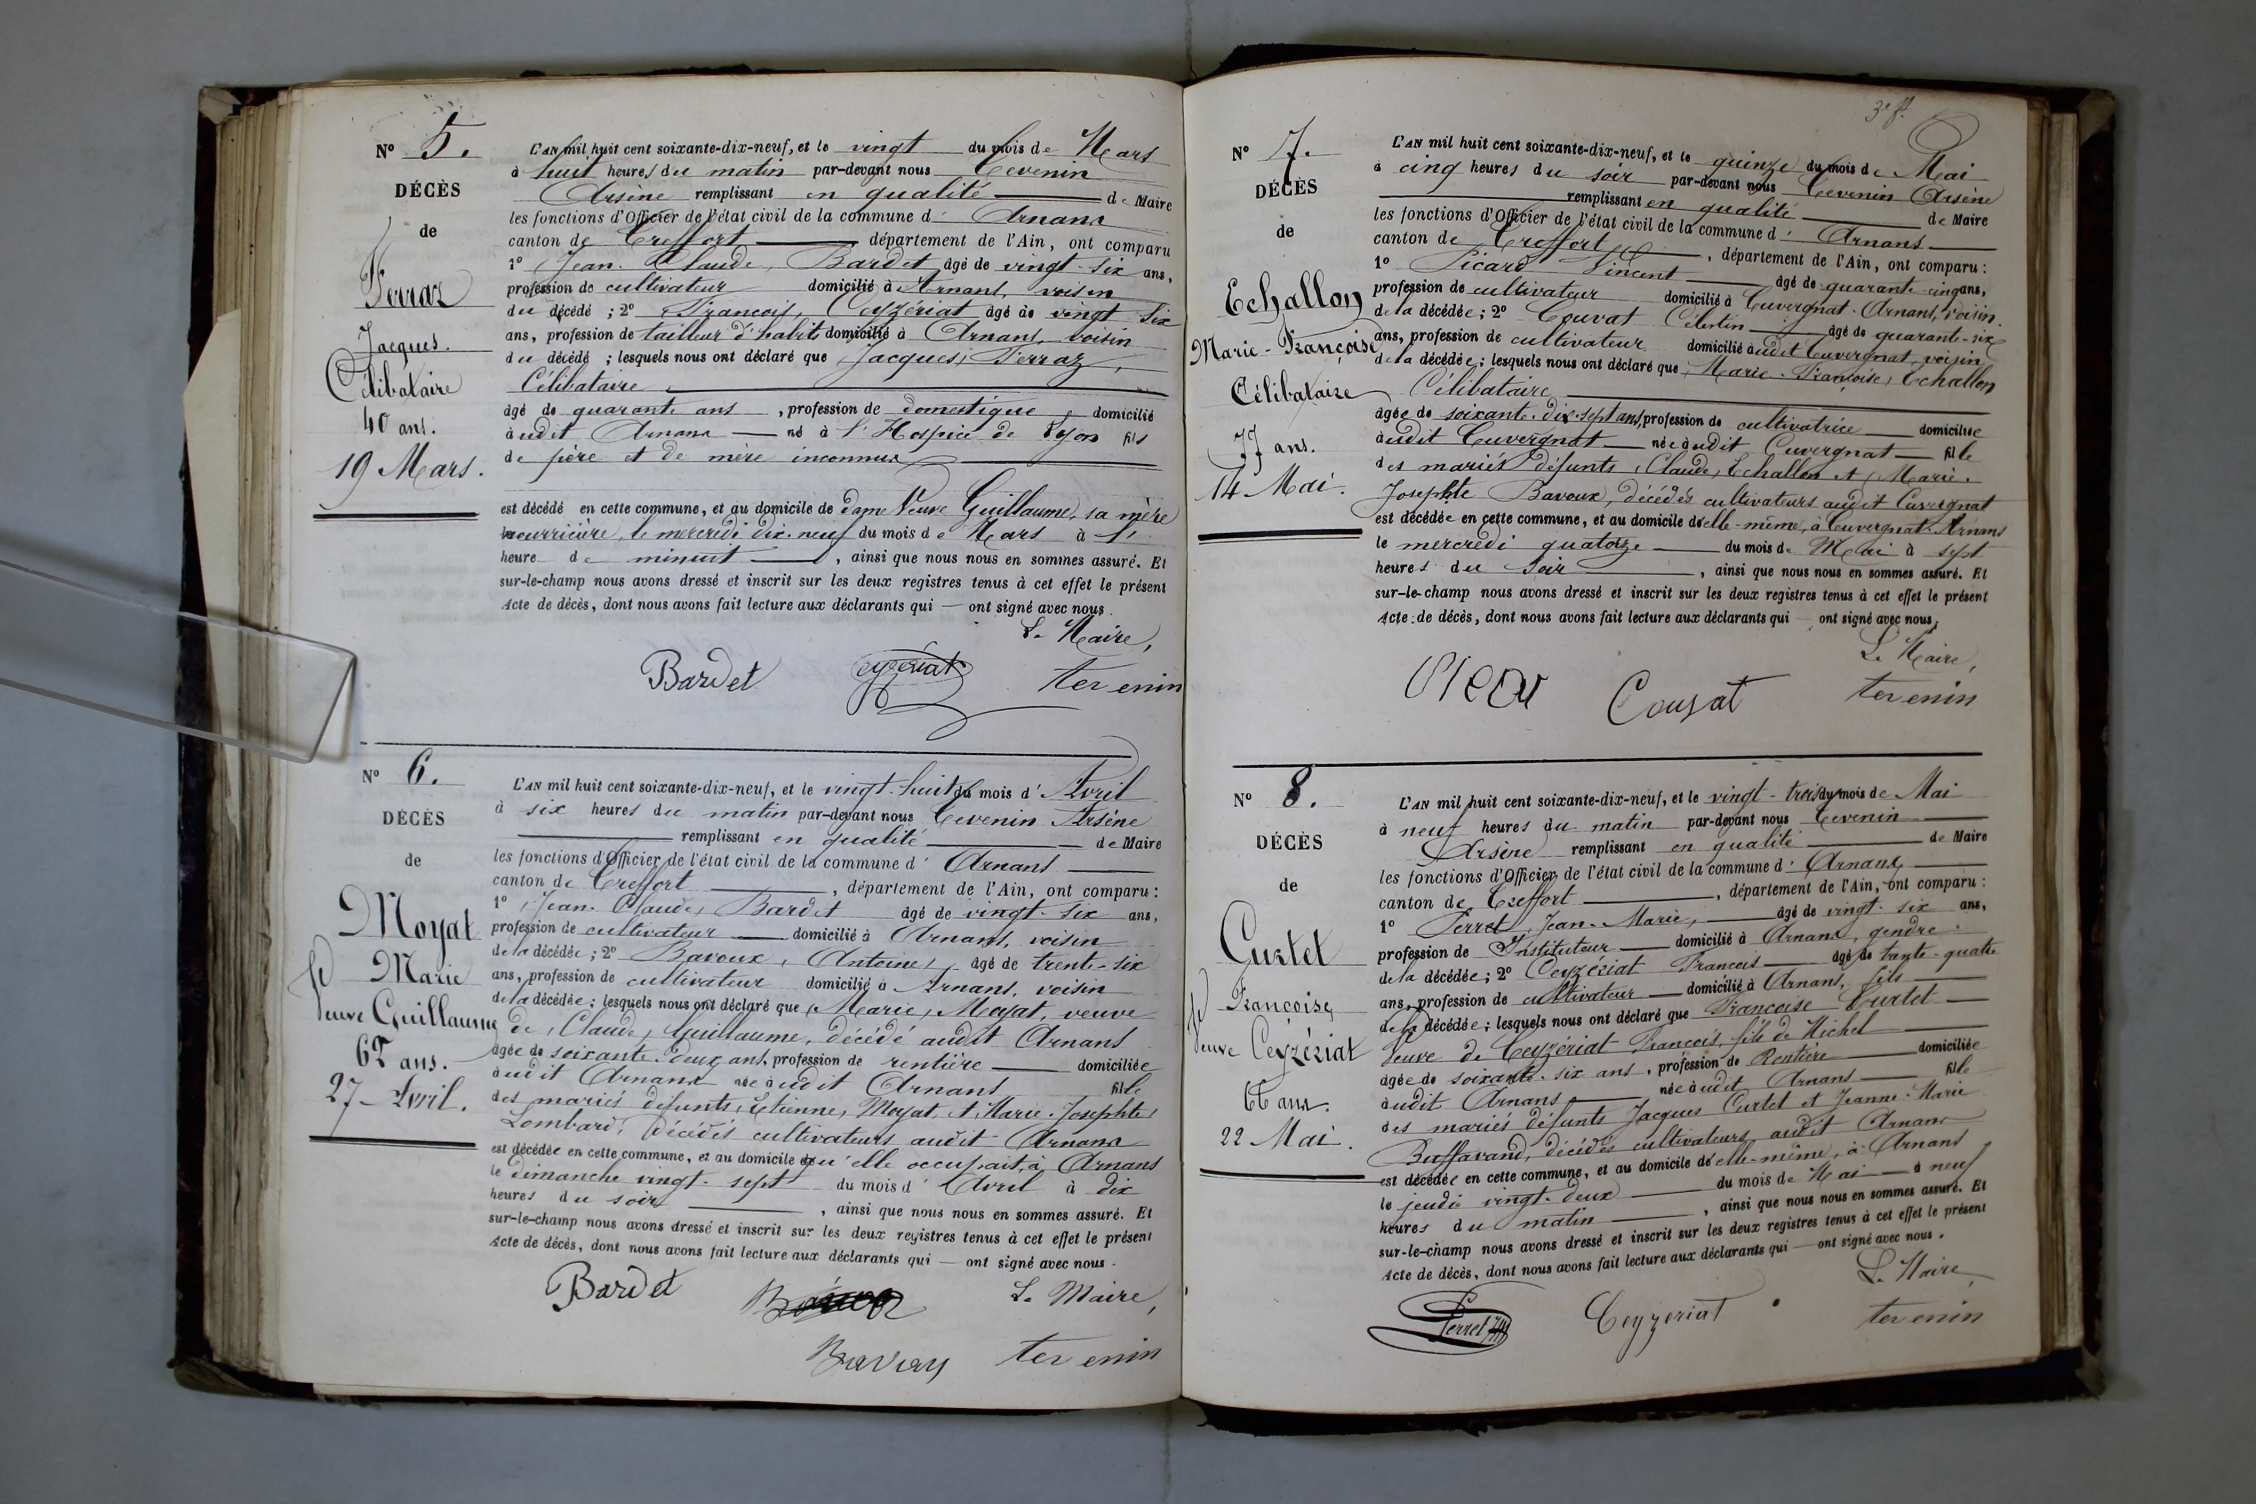 N° 5.
DÉCÈS
de
Ferraz
Jacques.
Célibataire
40 ans.
19 Mars.
L'AN mil huit cent soixante-dix-neuf, et le vingt du mois de Mars
à huit heures du matin par-devant nous Tevenin
Arsène remplissant en qualité de Maire
les fonctions d'Officier de l'état civil de la commune d' Arnans
canton de Treffort département de l'Ain, ont comparu
1° Jean-Claude, Bardet âgé de vingt-six ans,
profession de cultivateur domicilié à Arnans, voisin
du décédé ; 2° François, Ceyzériat âgé de vingt six
ans, profession de tailleur d'habits domicilié à Arnans, voisin
du décédé ; lesquels nous ont déclaré que Jacques, Ferraz,
Célibataire
âgé de quarante ans , profession de domestique, domicilié
audit Arnans né à l'Hospice de Lyon fils
de père et de mère inconnus
est décédé en cette commune, et au domicile de dame Veuve Guillaume, sa mère
nourricière, le mercredi dix-neuf du mois de Mars à l'
heure de minuit , ainsi que nous nous en sommes assuré. Et
sur-le-champ nous avons dressé et inscrit sur les deux registres tenus à cet effet le présent
Acte de décès, dont nous avons fait lecture aux déclarants qui — ont signé avec nous.
Le Maire,
Bardet Ceyzériat tevenin
N° 6.
DÉCÈS
de
Moyat
Marie
Veuve Guillaume
62 ans.
27 Avril.
L'AN mil huit cent soixante-dix-neuf, et le vingt-huit du mois d' Avril
à six heures du matin par-devant nous Tevenin Arsène
remplissant en qualité de Maire
les fonctions d'Officier de l'état civil de la commune d' Arnans
canton de Treffort , département de l'Ain, ont comparu :
1° Jean-Claude, Bardet âgé de vingt-six ans,
profession de cultivateur domicilié à Arnans, voisin
de la décédée ; 2° Bavoux, Antoine, âgé de trente-six
ans, profession de cultivateur domicilié à Arnans, voisin
de la décédée ; lesquels nous ont déclaré que Marie, Moyat, veuve
de, Claude, Guillaume, décédé audit Arnans
âgée de soixante-deux ans, profession de rentière domiciliée
audit Arnans née audit Arnans fille
des mariés défunts, Etienne, Moyat, et Marie-Josephte,
Lombard, décédés cultivateurs audit Arnans
est décédée en cette commune, et au domicile qu'elle occupait, à Arnans
le dimanche vingt-sept du mois d' Avril à dix
heures du soir , ainsi que nous nous en sommes assuré. Et
sur-le-champ nous avons dressé et inscrit sur les deux registres tenus à cet effet le présent
Acte de décès, dont nous avons fait lecture aux déclarants qui — ont signé avec nous.
Bardet Le Maire,
tevenin
3e ft.
N° 7.
DÉCÈS
de
Echallon
Marie-Françoise
Célibataire
77 ans.
14 Mai.
L'AN mil huit cent soixante-dix-neuf, et le quinze du mois de Mai
à cinq heures du soir par-devant nous Tevenin Arsène
remplissant en qualité de Maire
les fonctions d'Officier de l'état civil de la commune d' Arnans
canton de Treffort , département de l'Ain, ont comparu :
1° Picard Vincent âgé de quarante-cinq ans,
profession de cultivateur domicilié à Cuvergnat-Arnans, voisin.
de la décédée ; 2° Couvat Célestin âgé de quarante-six
ans, profession de cultivateur domicilié audit Cuvergnat, voisin
de la décédée ; lesquels nous ont déclaré que Marie-Françoise, Echallon
Célibataire
âgée de soixante-dix-sept ans, profession de cultivatrice domiciliée
audit Cuvergnat née audit Cuvergnat fille
des mariés défunts, Claude, Echallon et, Marie-
Josephte Bavoux, décédés cultivateurs audit Cuvergnat
est décédée en cette commune, et au domicile d'elle-même, à Cuvergnat-Arnans
le mercredi quatorze du mois de Mai à sept
heures du soir , ainsi que nous nous en sommes assuré. Et
sur-le-champ nous avons dressé et inscrit sur les deux registres tenus à cet effet le présent
Acte de décès, dont nous avons fait lecture aux déclarants qui — ont signé avec nous.
Le Maire,
Couvat tevenin
N° 8.
DÉCÈS
de
Curtet
Françoise,
Veuve Ceyzériat
66 ans.
22 Mai.
L'AN mil huit cent soixante-dix-neuf, et le vingt-trois du mois de Mai
à neuf heures du matin par-devant nous Tevenin
Arsène remplissant en qualité de Maire
les fonctions d'Officier de l'état civil de la commune d' Arnans
canton de Treffort , département de l'Ain, ont comparu :
1° Perret, Jean-Marie, âgé de vingt-six ans,
profession de Instituteur domicilié à Arnans, gendre
de la décédée ; 2° Ceyzériat François âgé de trente-quatre
ans, profession de cultivateur domicilié à Arnans, fils
de la décédée ; lesquels nous ont déclaré que Françoise Curtet
Veuve de Ceyzériat François, fils de Michel
âgée de soixante-six ans, profession de Rentière domiciliée
audit Arnans née audit Arnans fille
des mariés défunts Jacques Curtet et Jeanne-Marie
Buffavand, décédés cultivateurs audit Arnans
est décédée en cette commune, et au domicile d'elle-même, à Arnans
le jeudi vingt-deux du mois de Mai à neuf
heures du matin , ainsi que nous nous en sommes assuré. Et
sur-le-champ nous avons dressé et inscrit sur les deux registres tenus à cet effet le présent
Acte de décès, dont nous avons fait lecture aux déclarants qui — ont signé avec nous.
Le Maire,
Perret Ceyzeriat tevenin